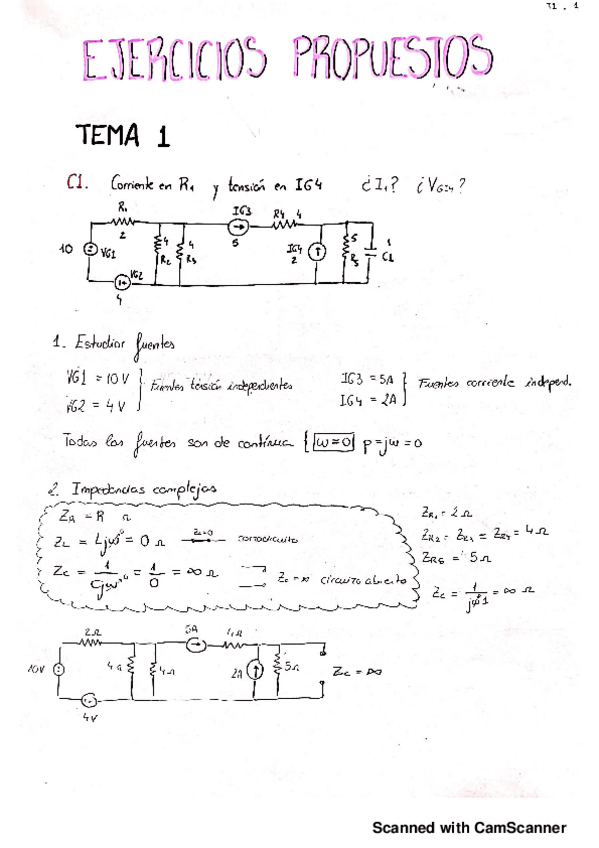 T1 . 1
EJERCICIOS PROPUESTOS
TEMA 1
C1. Corriente en R1 y tensión en IG4 ¿I1? ¿VGI4?
R1 IG3 R4 4
2 5
10 VG1 4 R2 4 R3 IG4 2 5 R5 1 C1
VG2
4
1. Estudiar fuentes
VG1 = 10V } Fuentes tensión independientes IG3 = 5A } Fuentes corriente independ.
VG2 = 4V IG4 = 2A
Todas las fuentes son de contínua { w=0 p=jw=0
2. Impedancias complejas
ZR = R Ω
ZL = Ljw = 0 Ω ZL=0 cortocircuito
ZC = 1/Cjw = 1/0 = ∞ Ω ZC=∞ circuito abierto
ZR1 = 2Ω
ZR2 = ZR3 = ZR4 = 4Ω
ZR5 = 5Ω
ZC = 1/jw1 = ∞ Ω
2Ω 5A 4Ω
10V 4Ω 4Ω 2A 5Ω ZC = ∞
4V
Scanned with CamScanner